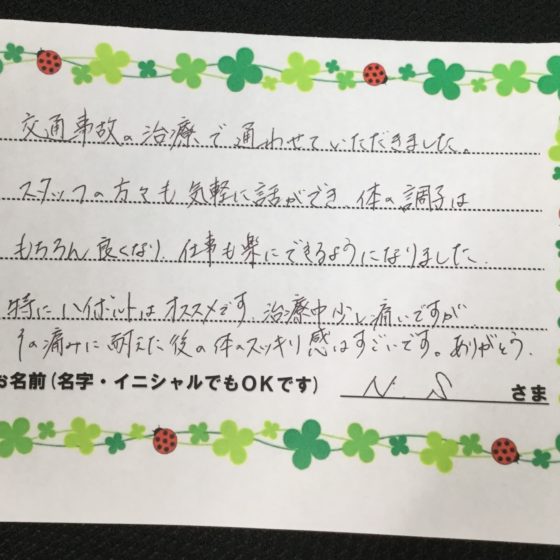 交通事故の治療で通わせていただきました。
スタッフの方々も気軽に話ができ、体の調子は
もちろん良くなり、仕事も楽にできるようになりました。
特にハイボルトはオススメです。治療中少し痛いですが、
その痛みに耐えた後の体のスッキリ感はすごいです。ありがとう。
お名前(名字・イニシャルでもOKです) N.S さま